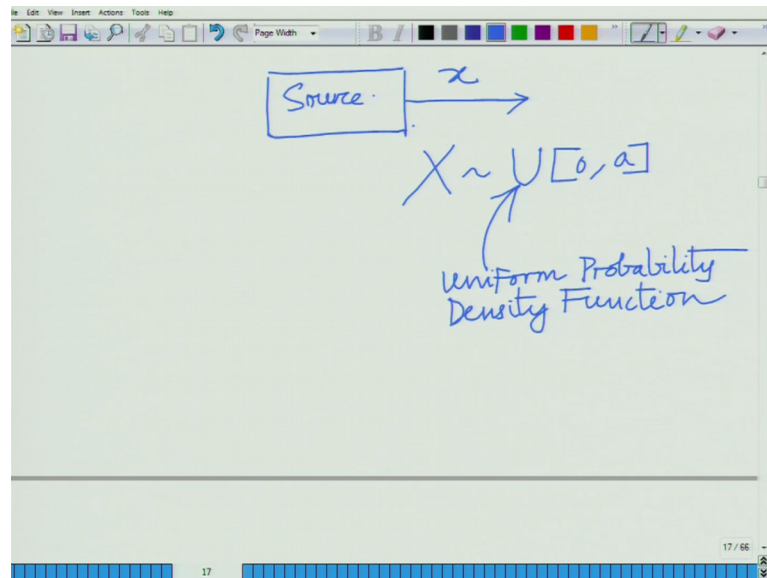 le Edit View Insert Actions Tools Help
Page Width
B I
Source.
x
X ~ U [0, a]
Uniform Probability
Density Function
17 / 66
17